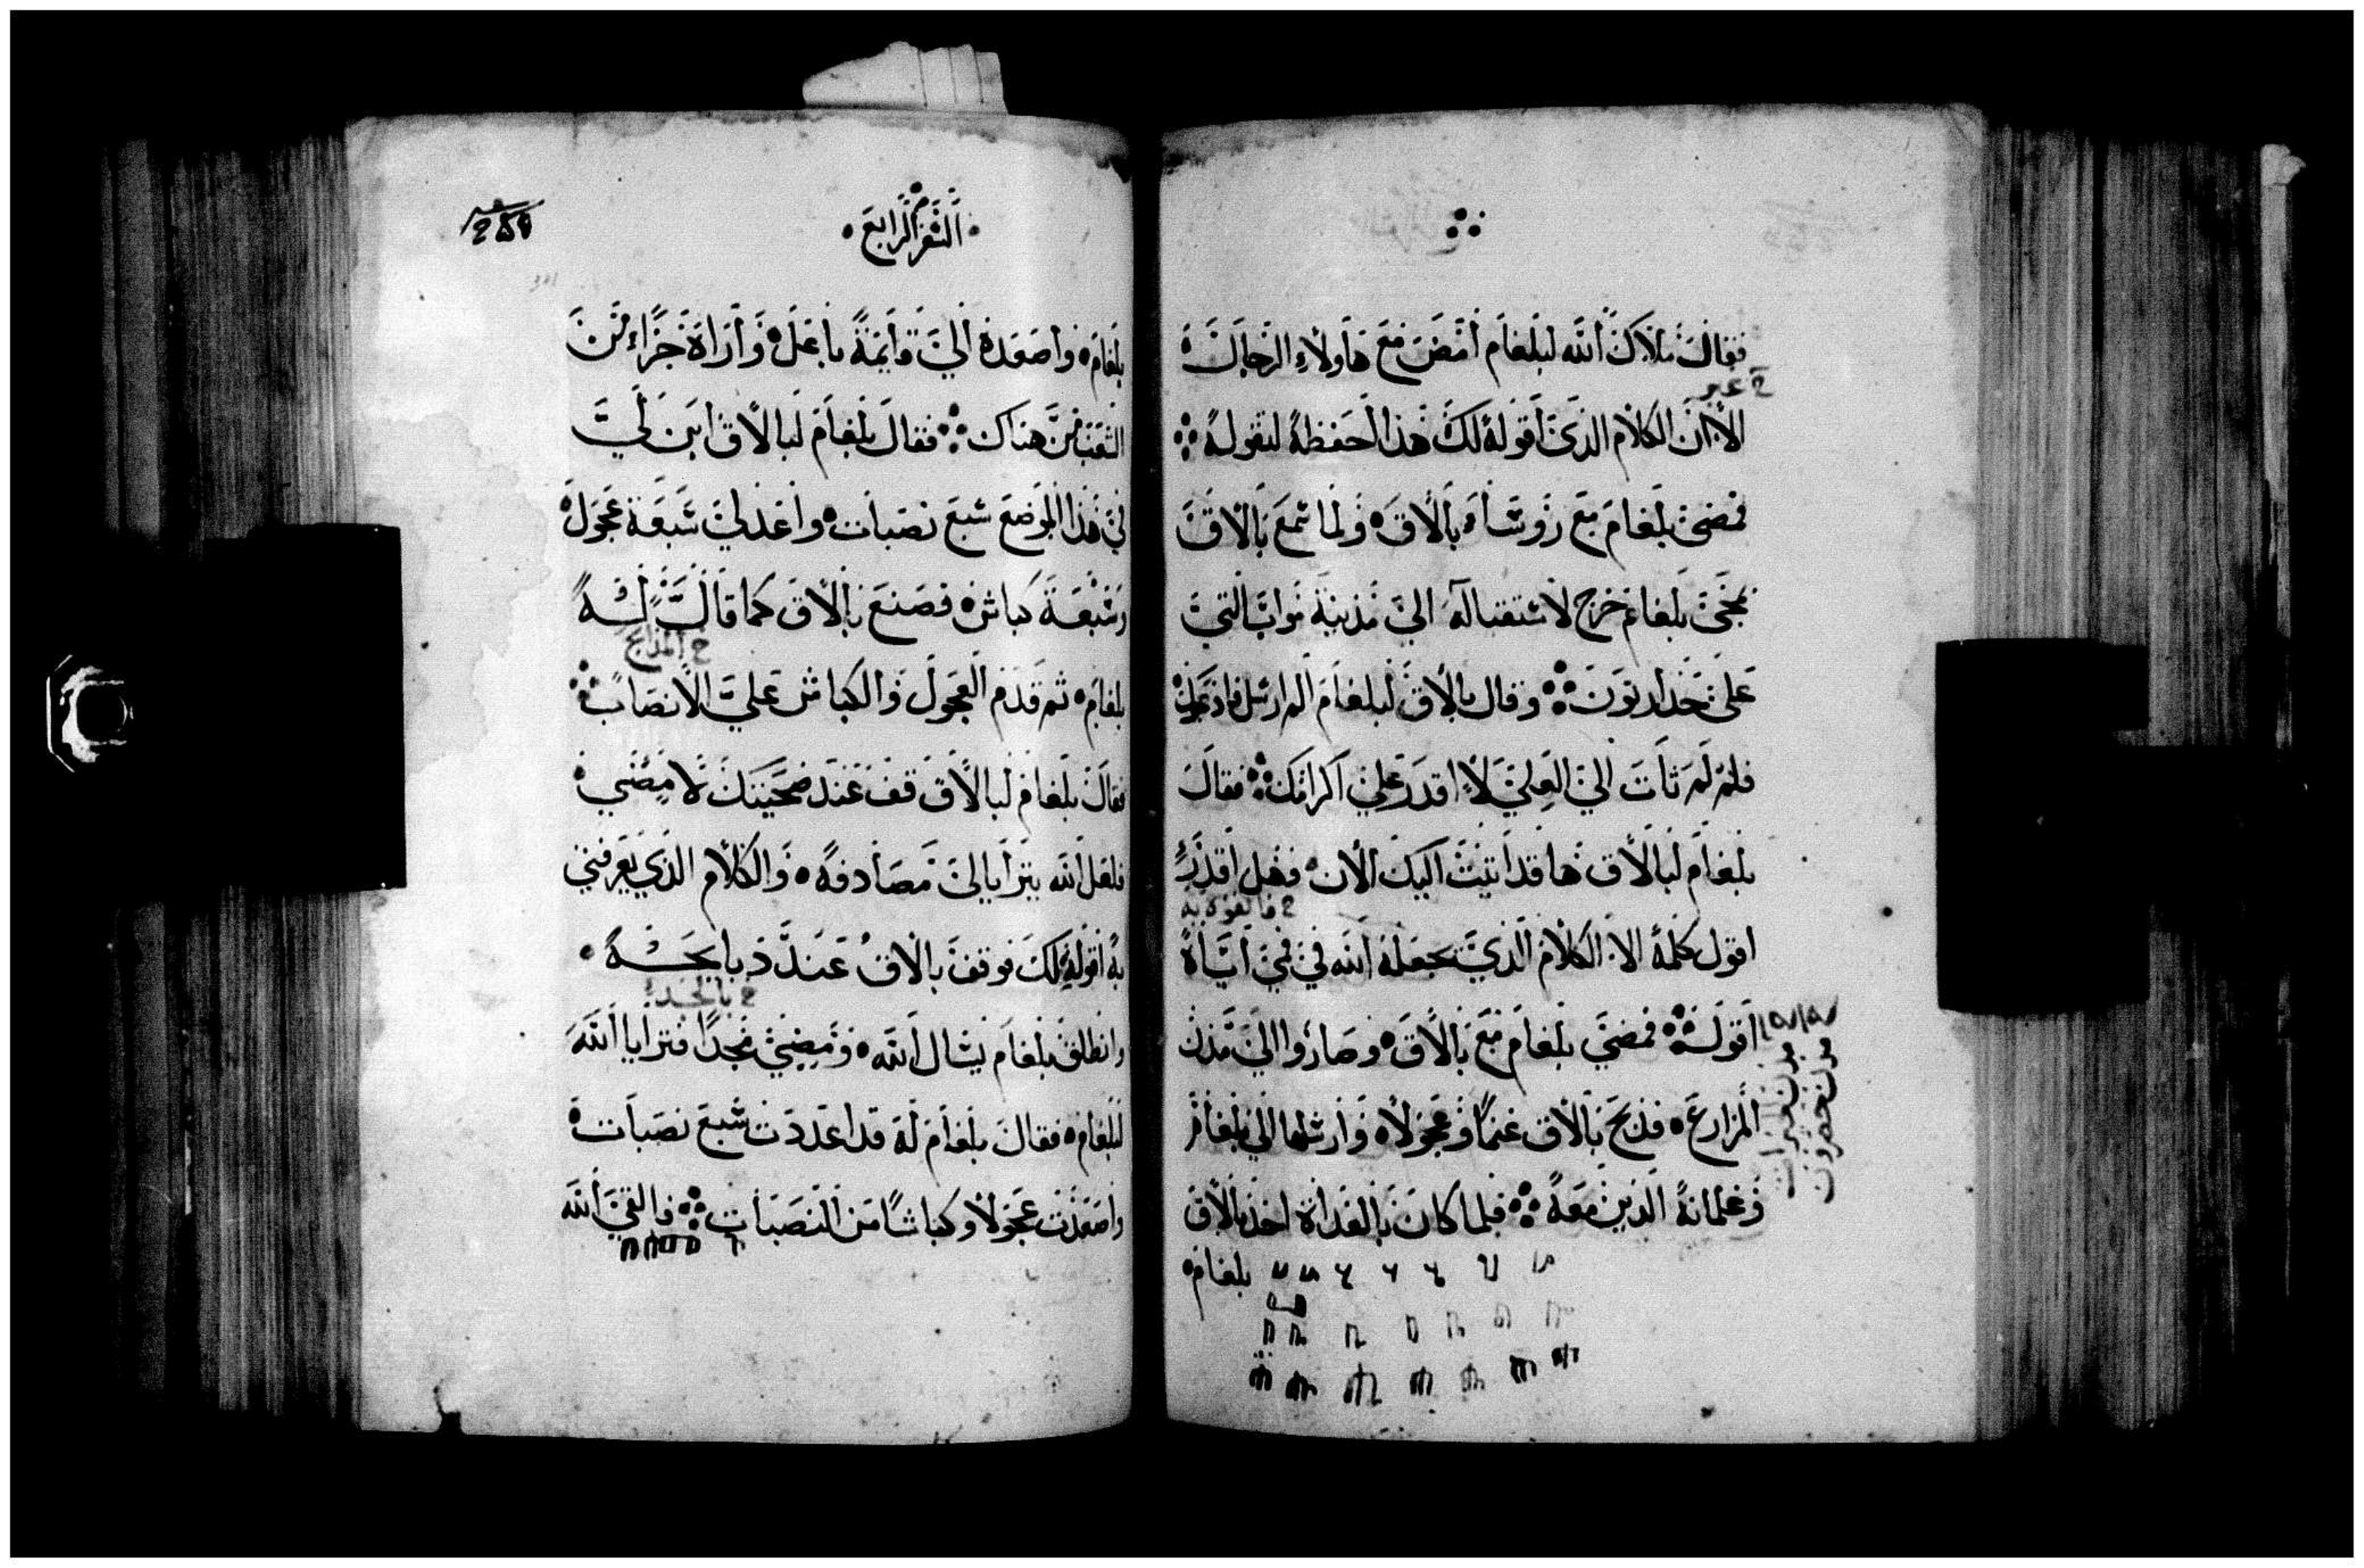 فقال ملاك الله لبلعام أمض مع هاولاء الرجال
ح غير
الا ان الكلام الذي أقوله لك هذا احفظه لتقوله
فمضى بلعام مع روساء بالاق ولما سمع بالاق
بمجى بلعام خرج لاستقباله الي مدينة مواب التي
على حد ارنون وقال بالاق لبلعام الم ارسل فادعوك
فلم لم تأت الي العلي لا اقدر علي اكرامك فقال
بلعام لبالاق ها قد اتيت اليك الان فهل اقدر
اقول كلمة الا الكلام الذي يجعله الله في في اياه
اقوله فمضي بلعام مع بالاق وصاروا الي مدن
المزارع فذبح بالاق غنما وعجولا وارسلها الي بلعام
وغلمانه الذين معه فلما كان بالغداة اخذ بالاق
بلعام
السفر الرابع
بلعام واصعده الي قايمة باعل واراه جزاء من
الشعب من هناك فقال بلعام لبالاق ابن لي
في هذا الموضع سبع نصبات واعد لي سبعة عجول
وسبعة كباش فصنع بالاق كما قال له
ح المذابح
بلعام ثم قدم العجول والكباش علي الانصاب
فقال بلعام لبالاق قف عند ضحيتك لامضي
فلعل الله يترايا لي مصادفة والكلام الذي يعرفني
به اقوله لك فوقف بالاق عند ذبايحه
وانطلق بلعام يسال الله ومضي نجدا فترايا الله
لبلعام فقال بلعام له قد اعددت سبع نصبات
واصعدت عجولا وكباشا من النصبات فالقي الله